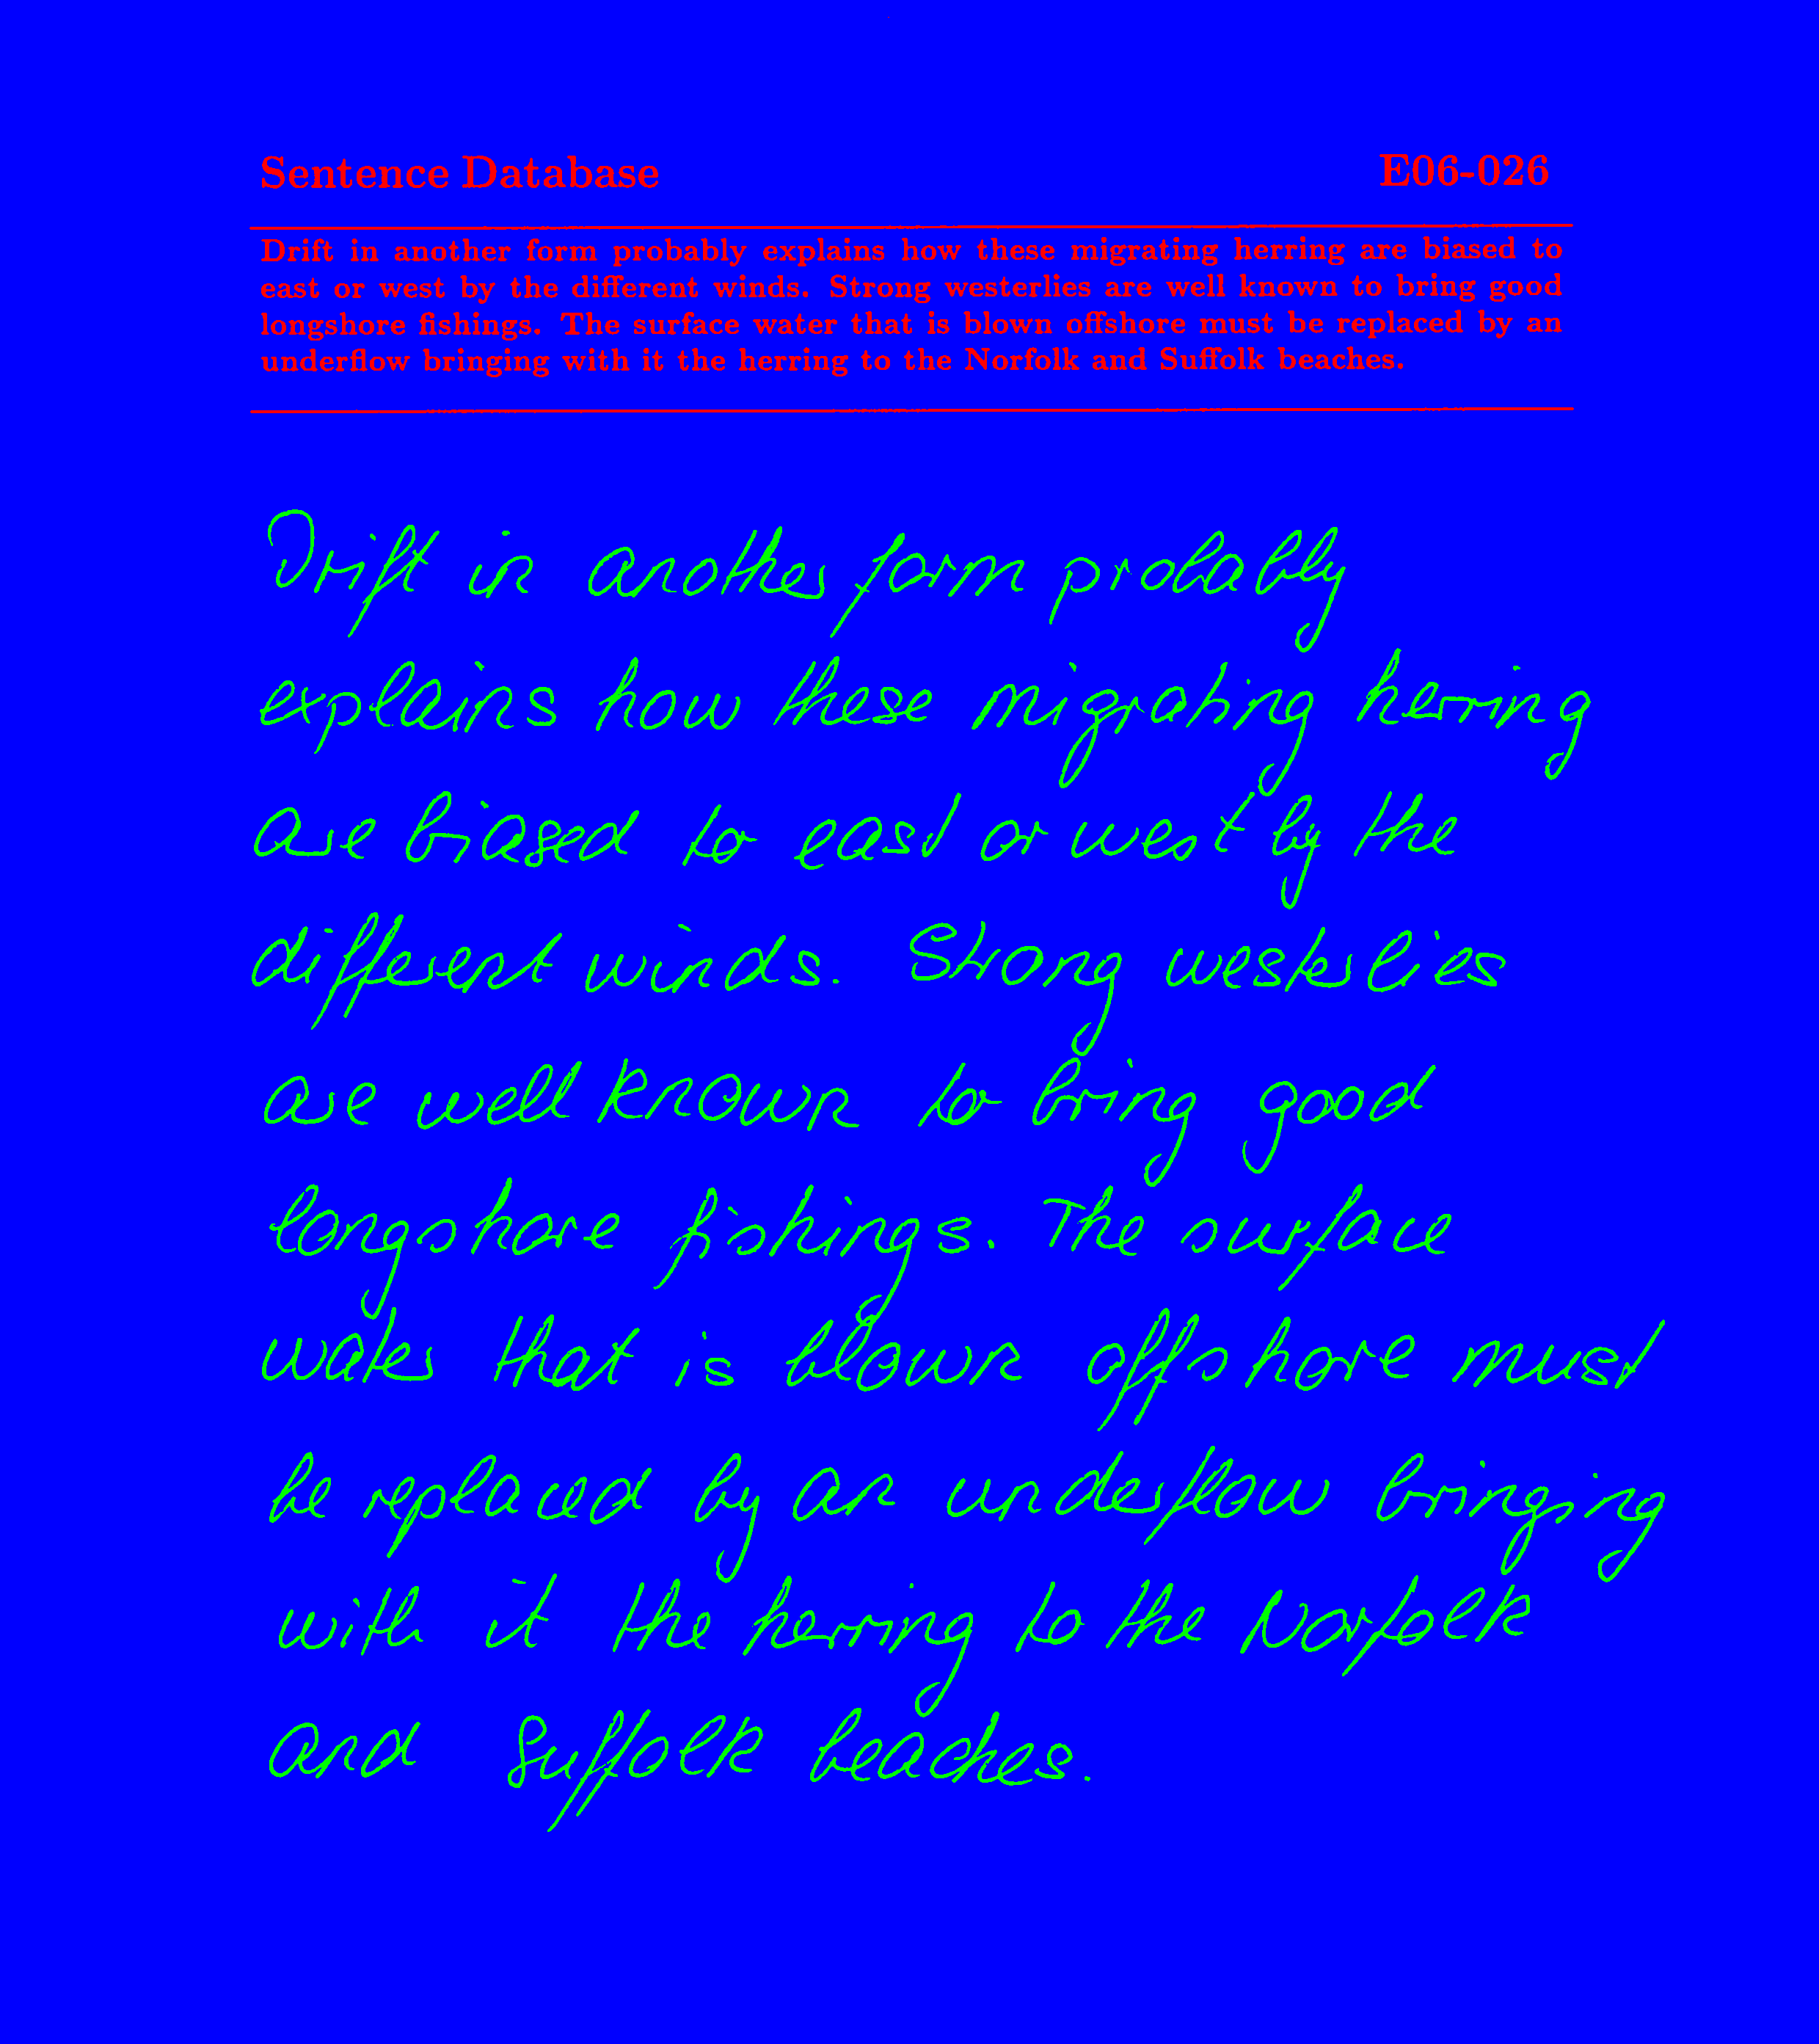 Sentence Database E06-026
Drift in another form probably explains how these migrating herring are biased to
east or west by the different winds. Strong westerlies are well known to bring good
longshore fishings. The surface water that is blown offshore must be replaced by an
underflow bringing with it the herring to the Norfolk and Suffolk beaches.
Drift in another form probably
explains how these migrating herring
are biased to east or west by the
different winds. Strong westerlies
are well known to bring good
longshore fishings. The surface
water that is blown offshore must
be replaced by an underflow bringing
with it the herring to the Norfolk
and Suffolk beaches.